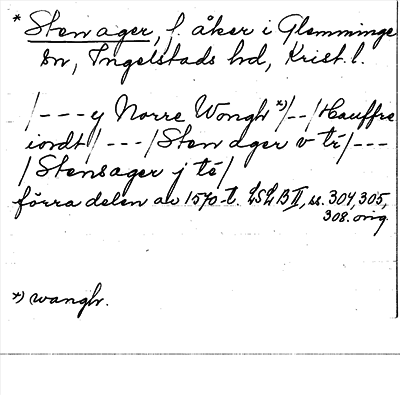 * Stenager, f. åker i Glemminge
sn, Ingelstads hd, Krist. l.
/---y Norre Wongh *)/--/Hauffre
iordt/---/Sten ager v té/---
/Stensager j té/
förra delen av 1570-t. LSLB II, ss. 304, 305,
308. orig.
*) wangh.